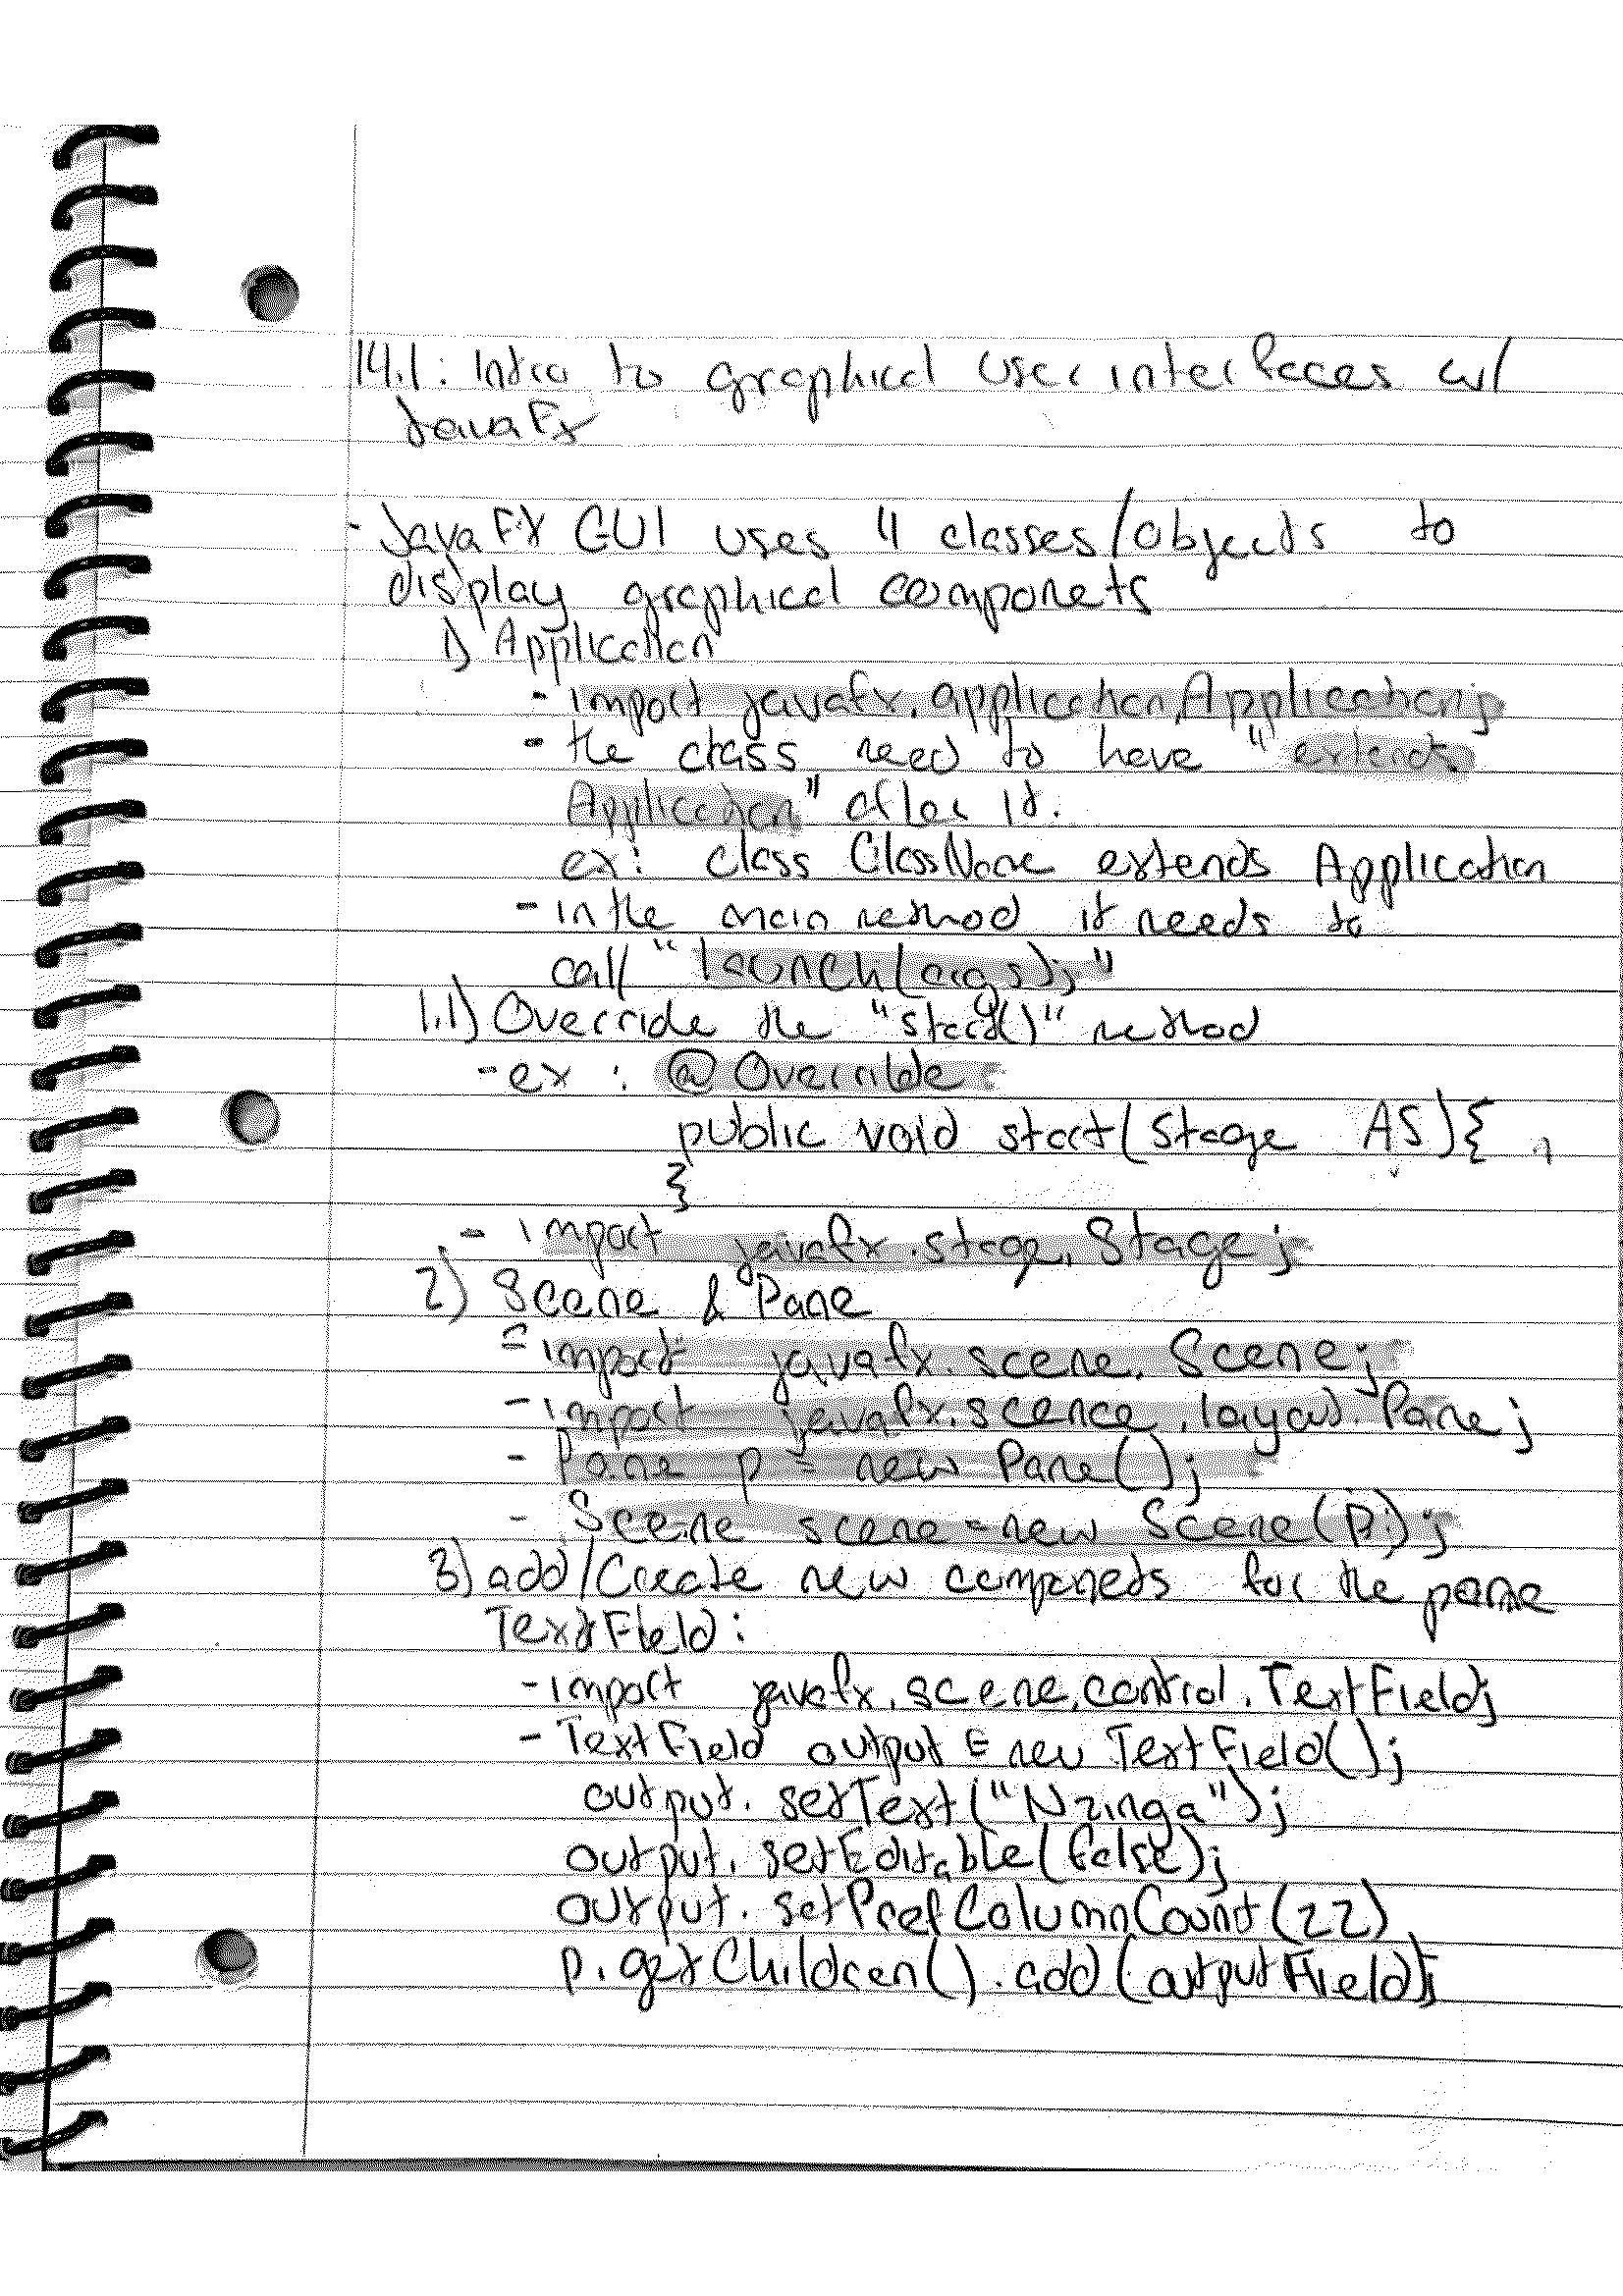 14.1: Intro to graphical user interfaces w/
JavaFx
- JavaFX GUI uses 4 classes/objects to
display graphical components
1) Application
- import javafx.application.Application;
- the class need to have "extends
Application" after it.
ex: class ClassName extends Application
- in the main method it needs to
call "launch(args);"
1.1) Override the "start()" method
- ex : @Override
public void start(Stage AS){
}
- import javafx.stage.Stage;
2) Scene & Pane
- import javafx.scene.Scene;
- import javafx.scence.layout.Pane;
- Pane p = new Pane();
- Scene scene = new Scene(p);
3) add/Create new componets for the pane
TextField:
- import javafx.scene.control.TextField;
- TextField output = new TextField();
output.setText("Nzinga");
output.setEditable(false);
output.setPrefColumnCount(22)
p.getChildren().add(outputField);